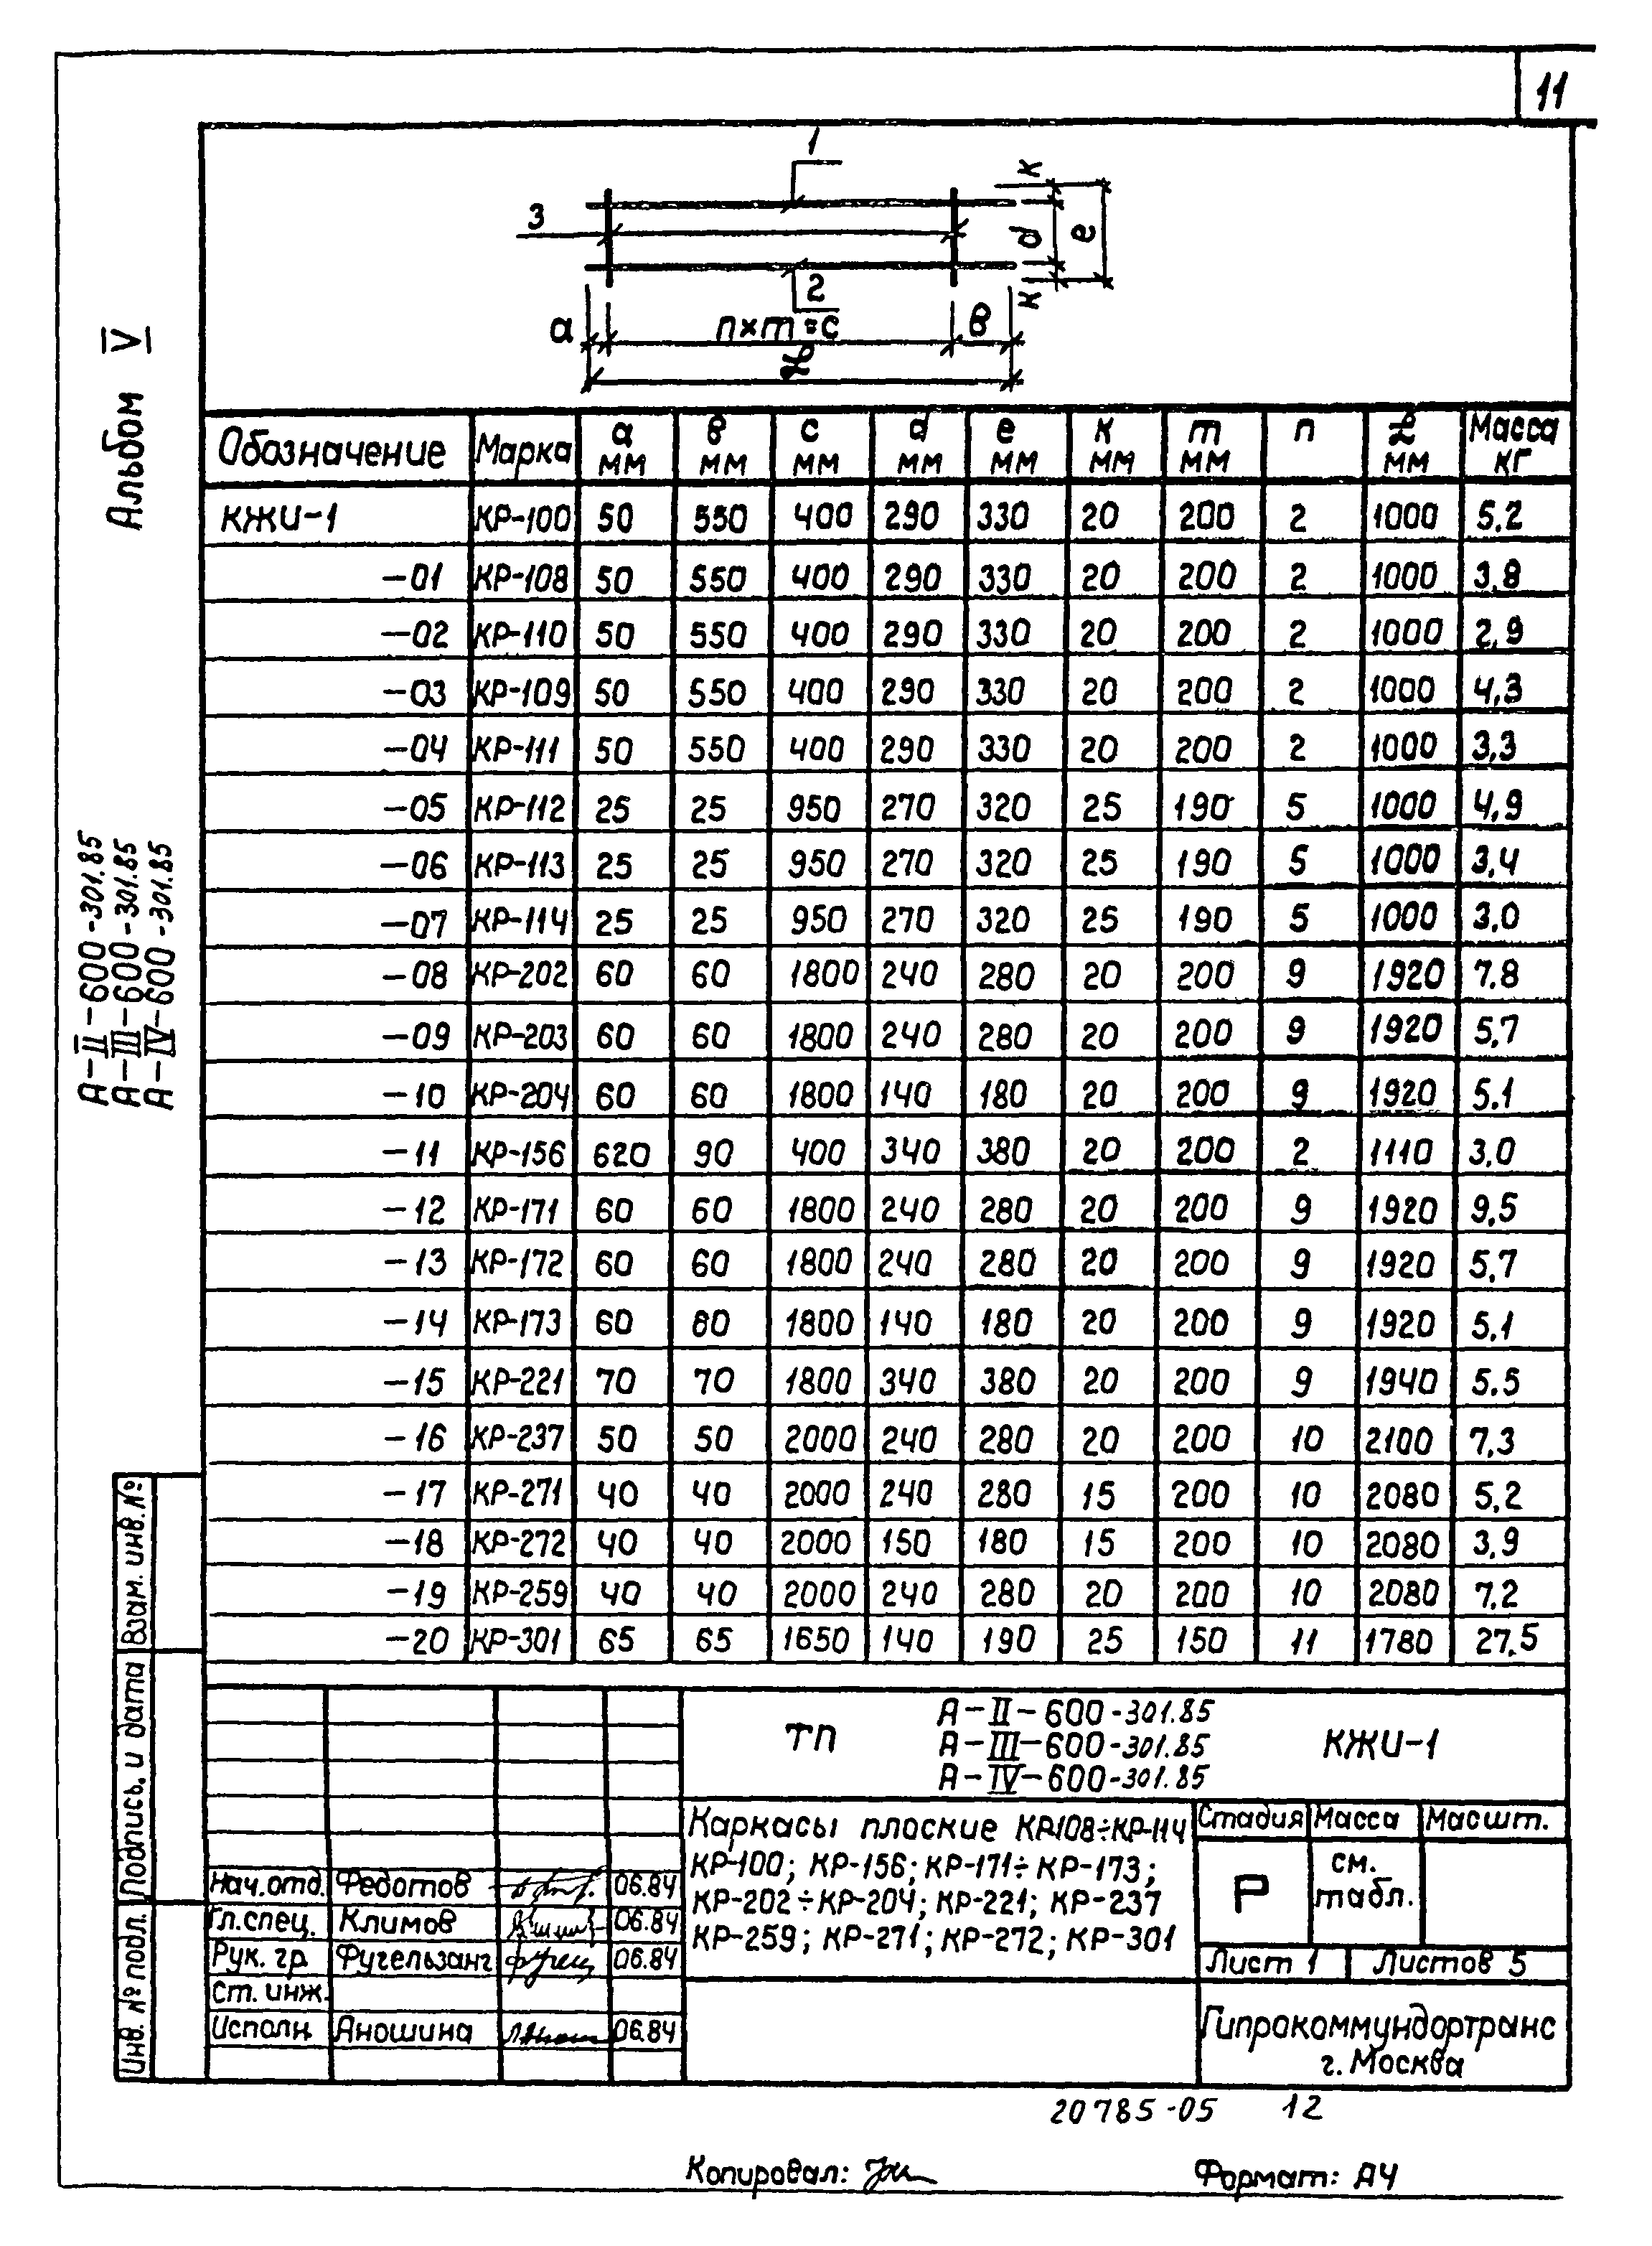 11
1
3
к
d
e
к
2
а
n×m=c
в
ℒ
Альбом V
А-II-600-301.85
А-III-600-301.85
А-IV-600-301.85
Обозначение Марка а мм в мм c мм d мм e мм к мм m мм n ℒ мм Масса кг
КЖИ-1 КР-100 50 550 400 290 330 20 200 2 1000 5.2
-01 КР-108 50 550 400 290 330 20 200 2 1000 3,8
-02 КР-110 50 550 400 290 330 20 200 2 1000 2,9
-03 КР-109 50 550 400 290 330 20 200 2 1000 4,3
-04 КР-111 50 550 400 290 330 20 200 2 1000 3,3
-05 КР-112 25 25 950 270 320 25 190 5 1000 4,9
-06 КР-113 25 25 950 270 320 25 190 5 1000 3,4
-07 КР-114 25 25 950 270 320 25 190 5 1000 3.0
-08 КР-202 60 60 1800 240 280 20 200 9 1920 7.8
-09 КР-203 60 60 1800 240 280 20 200 9 1920 5,7
-10 КР-204 60 60 1800 140 180 20 200 9 1920 5.1
-11 КР-156 620 90 400 340 380 20 200 2 1110 3.0
-12 КР-171 60 60 1800 240 280 20 200 9 1920 9,5
-13 КР-172 60 60 1800 240 280 20 200 9 1920 5,7
-14 КР-173 60 60 1800 140 180 20 200 9 1920 5,1
-15 КР-221 70 70 1800 340 380 20 200 9 1940 5.5
-16 КР-237 50 50 2000 240 280 20 200 10 2100 7,3
-17 КР-271 40 40 2000 240 280 15 200 10 2080 5,2
-18 КР-272 40 40 2000 150 180 15 200 10 2080 3,9
-19 КР-259 40 40 2000 240 280 20 200 10 2080 7,2
-20 КР-301 65 65 1650 140 190 25 150 11 1780 27,5
Взам. инв. №
Подпись и дата
Инв. № подл.
ТП
А-II-600-301.85
А-III-600-301.85
А-IV-600-301.85
КЖИ-1
Каркасы плоские КР-108÷КР-114
КР-100; КР-156; КР-171÷КР-173;
КР-202÷КР-204; КР-221; КР-237
КР-259; КР-271; КР-272; КР-301
Стадия Масса Масшт.
Р см. табл.
Лист 1 Листов 5
Гипрокоммундортранс
г. Москва
Нач. отд. Федотов 06.84
Гл. спец. Климов 06.84
Рук. гр. Фугельзанг 06.84
Ст. инж.
Исполн. Аношина 06.84
20785-05 12
Копировал:
Формат: А4